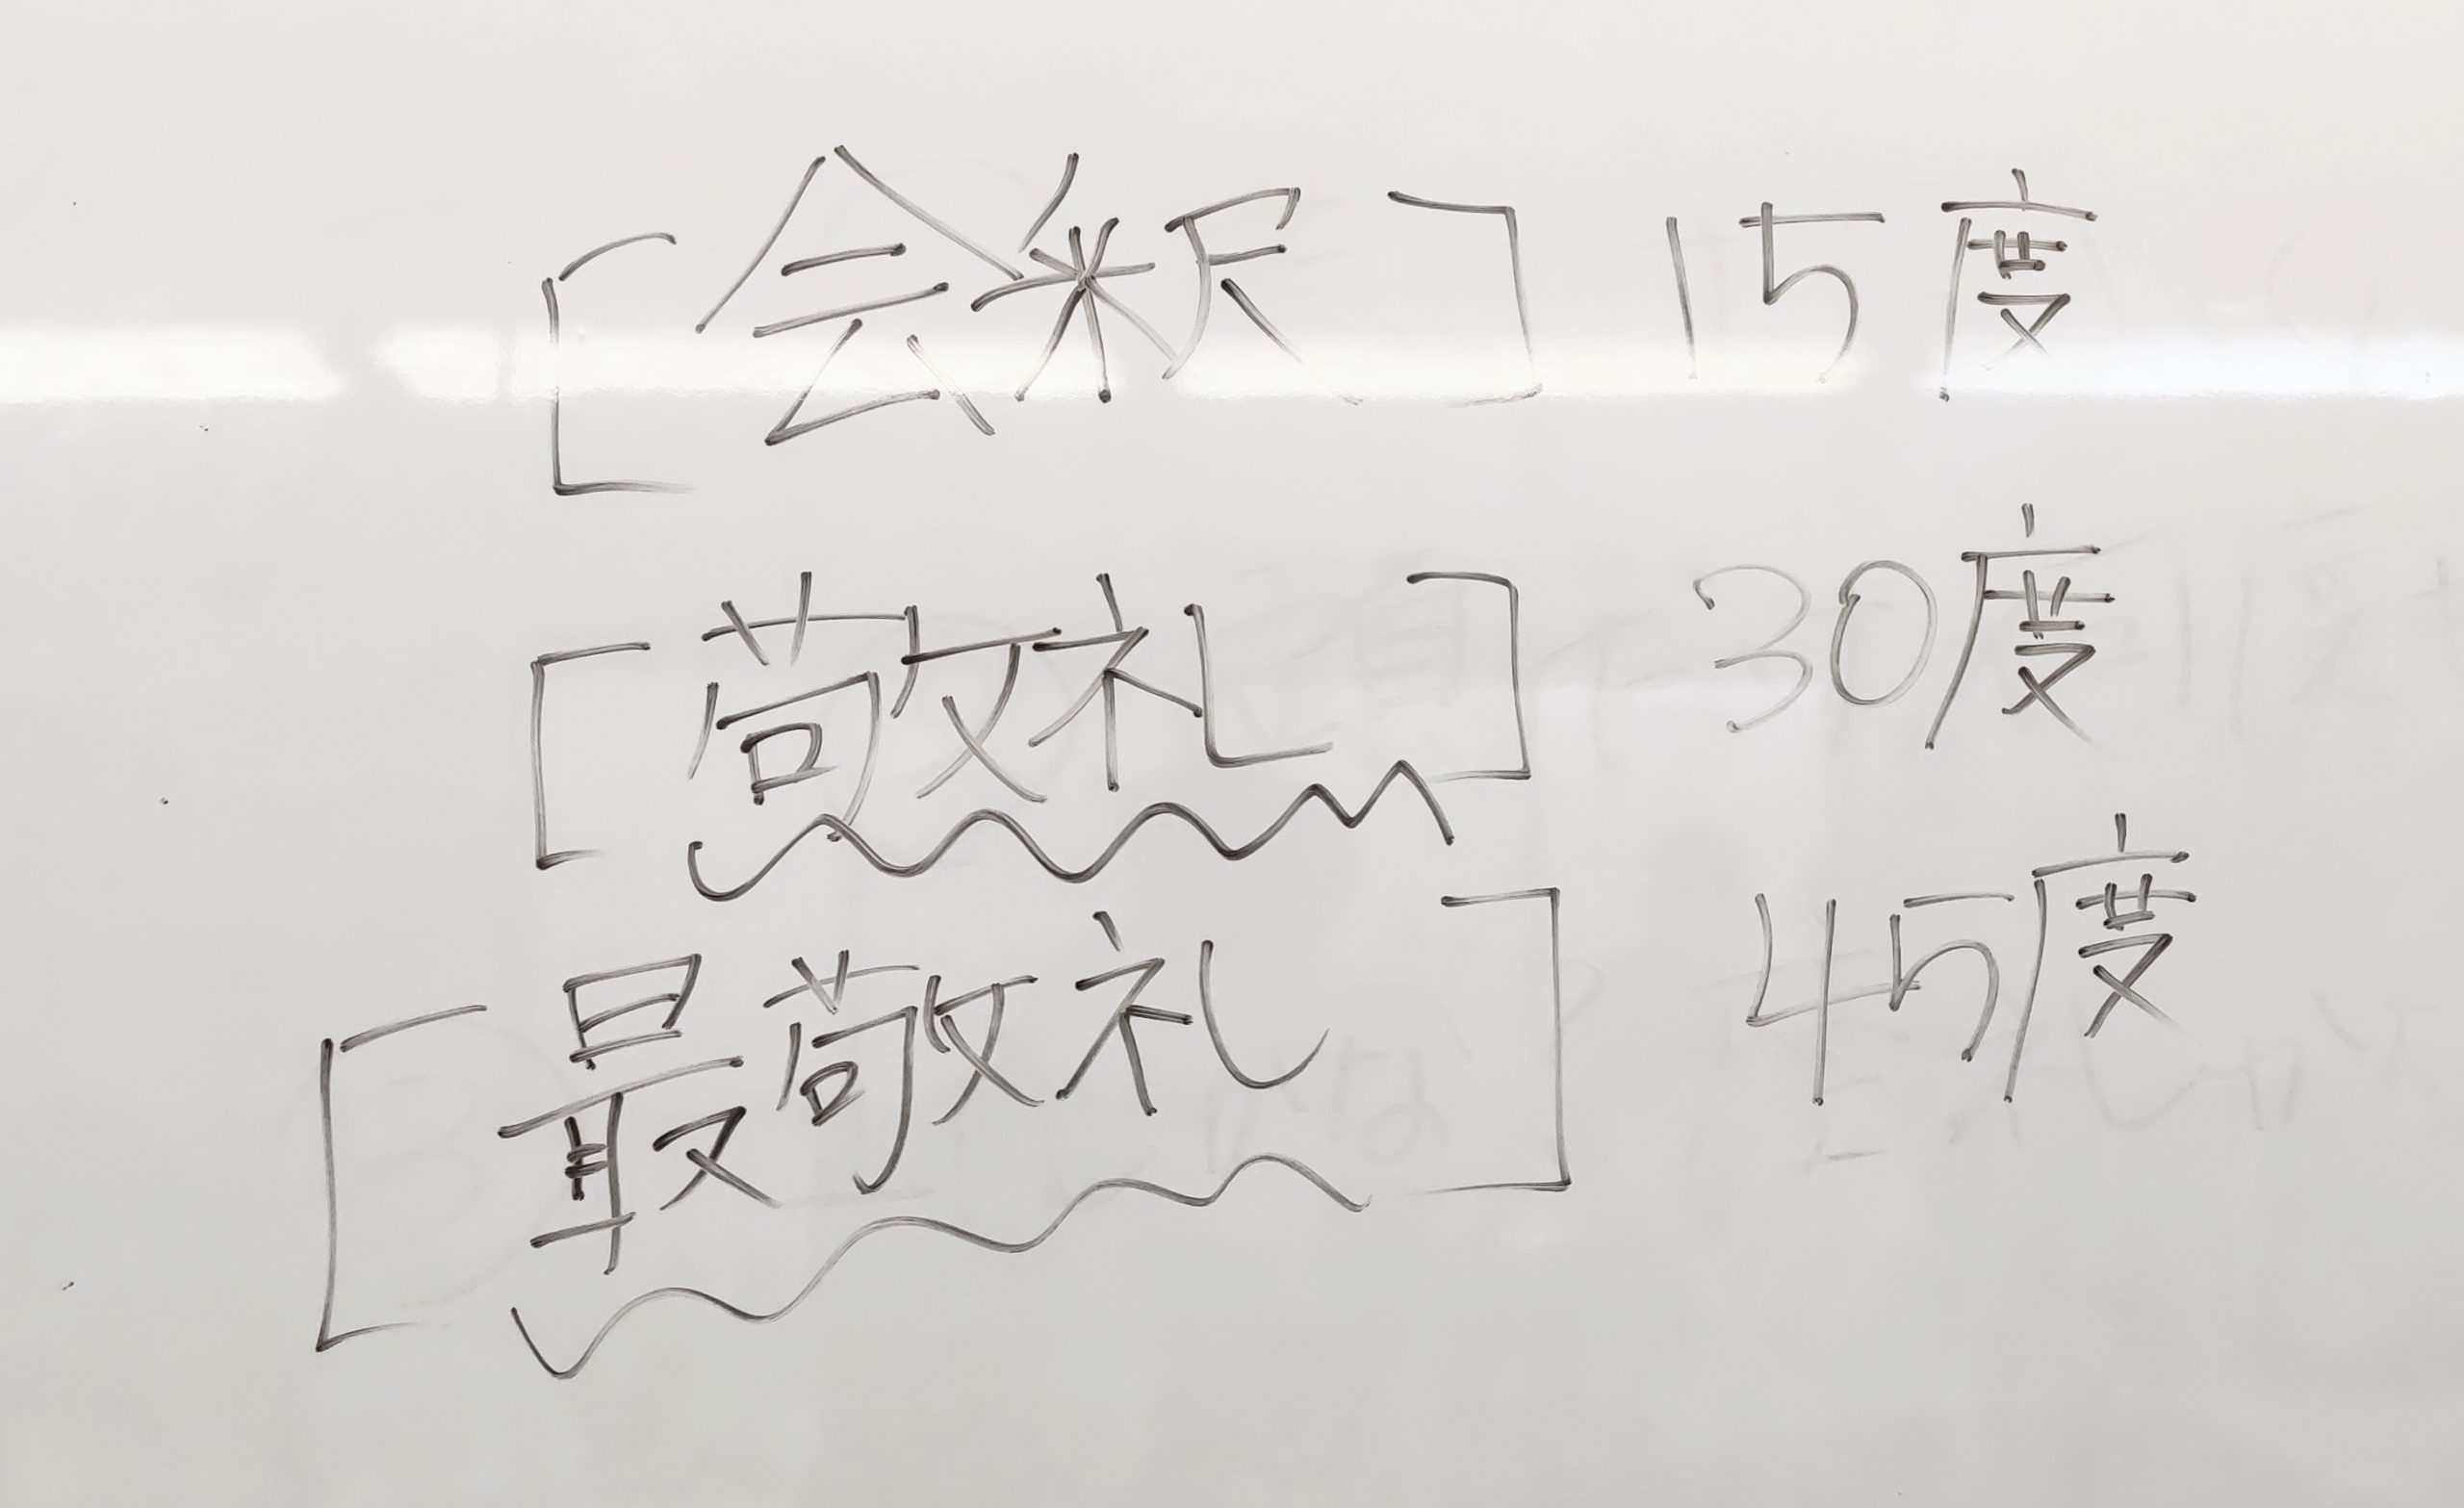 [会釈] 15度
[敬礼] 30度
[最敬礼] 45度